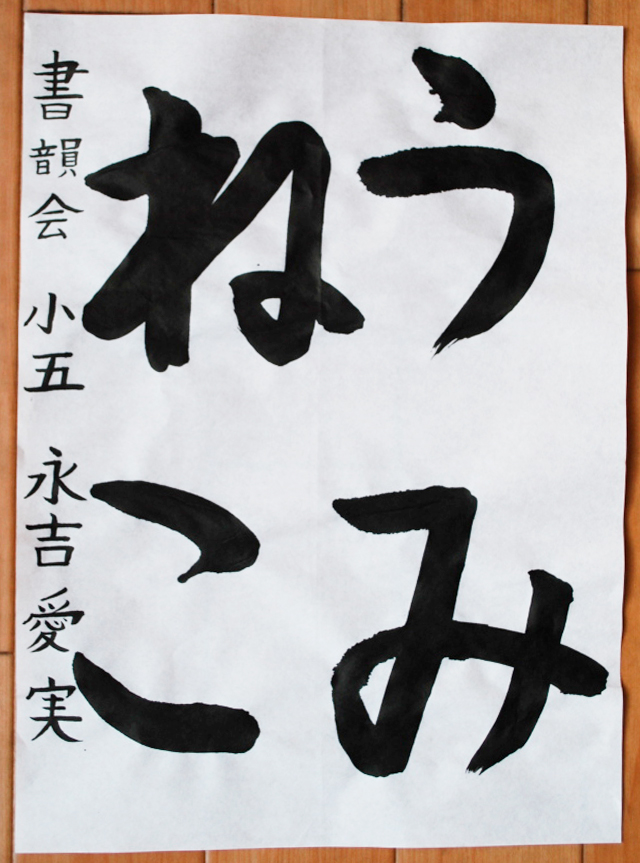 うみ
ねこ
書韻会 小五 永吉愛実